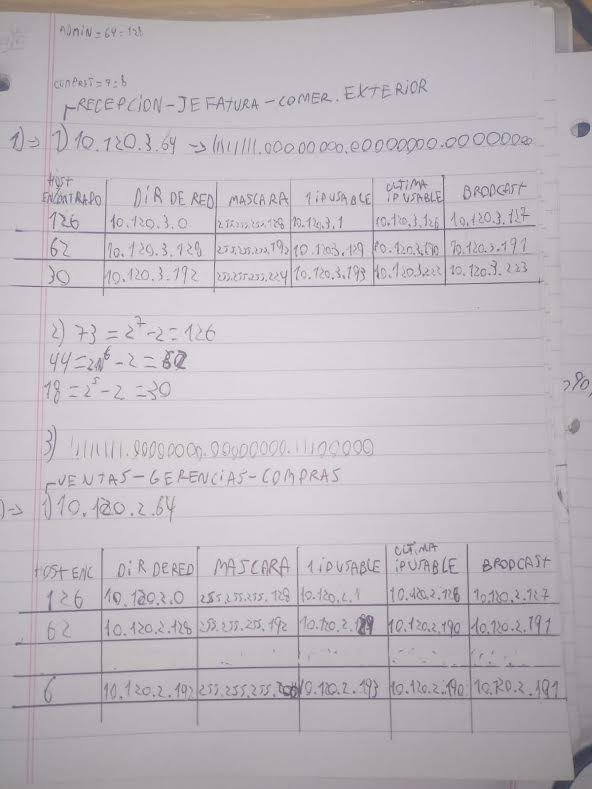 ADMIN = 64 = 128
COMPRAS = 4 = 6
RECEPCION - JEFATURA - COMER. EXTERIOR
1) => 1) 10.120.3.64 -> 11111111.00000000.00000000.00000000
HOST ENCONTRADO DIR DE RED MASCARA 1 IPUSABLE ULTIMA IPUSABLE BRODCAST
126 10.120.3.0 255.255.255.128 10.120.3.1 10.120.3.126 10.120.3.127
62 10.120.3.128 255.255.255.192 10.120.3.129 10.120.3.190 10.120.3.191
30 10.120.3.192 255.255.255.224 10.120.3.193 10.120.3.222 10.120.3.223
2) 73 = 2^7 - 2 = 126
44 = 2^6 - 2 = 62
18 = 2^5 - 2 = 30
3) 11111111.00000000.00000000.11100000
VENTAS - GERENCIAS - COMPRAS
1) 10.120.2.64
HOST ENC DIR DE RED MASCARA 1 IPUSABLE ULTIMA IPUSABLE BRODCAST
126 10.120.2.0 255.255.255.128 10.120.2.1 10.120.2.126 10.120.2.127
62 10.120.2.128 255.255.255.192 10.120.2.129 10.120.2.190 10.120.2.191
6 10.120.2.192 255.255.255. 10.120.2.193 10.120.2.190 10.120.2.191